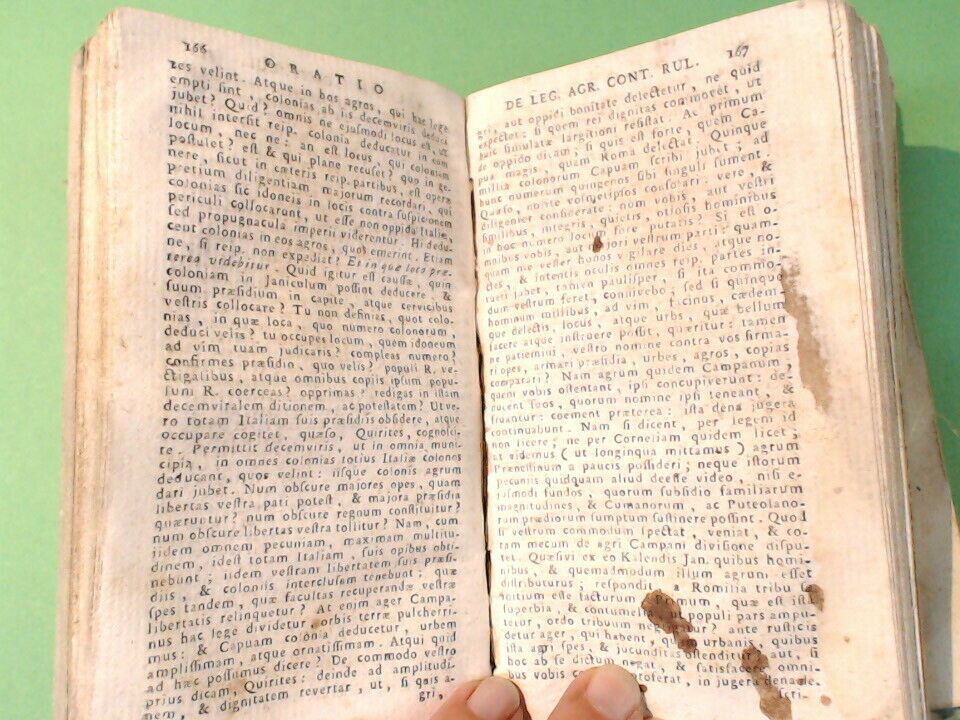 166
ORATIO
res velint. Atque in hos agros, qui hac lege
empti sint, colonias ab iis decemviris deduci
jubet? Quid? omnis ne ejusmodi locus est, ut
nihil intersit reip. colonia deducatur in eum
locum, nec ne: an est locus, qui coloniam
postulet? est & qui plane recuset? quo in ge-
nere, sicut in cæteris reip. partibus, est operæ
pretium diligentiam majorum recordari, qui
colonias sic idoneis in locis contra suspicionem
periculi collocarunt, ut esse non oppida Italiæ,
sed propugnacula imperii viderentur. Hi dedu-
cent colonias in eos agros, quos emerint. Etiam
ne, si reip. non expediat? Et in quæ loca præ-
terea videbitur. Quid igitur est caussæ, quin
coloniam in Janiculum possint deducere, &
suum præsidium in capite, atque cervicibus
vestris collocare? Tu non definias, quot colo-
nias, in quæ loca, quo numero colonorum
deduci velis? tu occupes locum, quem idoneum
ad vim tuam judicaris? compleas numero?
confirmes præsidio, quo velis? populi R. ve-
ctigalibus, atque omnibus copiis ipsum popu-
lum R. coerceas? opprimas? redigas in istam
decemviralem ditionem, ac potestatem? Ut ve-
ro totam Italiam suis præsidiis obsidere, atque
occupare cogitet, quæso, Quirites, cognosci-
te. Permittit decemviris, ut in omnia muni-
cipia, in omnes colonias totius Italiæ colonos
deducant, quos velint: iisque colonis agrum
dari jubet. Num obscure majores opes, quam
libertas vestra pati potest, & majora præsidia
quæruntur? num obscure regnum constituitur?
num obscure libertas vestra tollitur? Nam, cum
iidem omnem pecuniam, maximam multitu-
dinem, idest totam Italiam, suis opibus obti-
nebunt; iidem vestram libertatem suis præsi-
diis, & coloniis interclusam tenebunt; quæ
spes tandem, quæ facultas recuperandæ vestræ
libertatis relinquetur? At enim ager Campa-
nus hac lege dividetur orbis terræ pulcherri-
mus: & Capuam colonia deducetur, urbem
amplissimam, atque ornatissimam. Atqui quid
ad hæc possumus dicere? De commodo vestro
prius dicam, Quirites: deinde ad amplitudi-
nem, & dignitatem revertar, ut, si quis a-
gri,
167
DE LEG. AGR. CONT. RUL.
gri, aut oppidi bonitate delectetur, ne quid
expectet: si quem rei dignitas commovet, ut
huic simulatæ largitioni resistat. Ac primum
de oppido dicam; si quis est forte, quem Ca-
pua magis, quam Roma delectat. Quinque
millia colonorum Capuam scribi jubet; ad
hunc numerum quingenos sibi singuli sument.
Quæso, nolite vosmetipsos consolari: vere, &
diligenter considerate: num vobis, aut vestri
similibus, integris, quietis, otiosis hominibus
in hoc numero locum fore putatis? Si est o-
mnibus vobis, aut majori vestrum parti: quam-
quam me vester honos vigilare dies, atque no-
ctes, & intentis oculis omnes reip. partes in-
tueri jubet, tamen paulisper, si ita commo-
dum vestrum feret, connivebo. sed si quinque
hominum millibus, ad vim, facinus, cædem-
que delectis, locus, atque urbs, quæ bellum
facere atque instruere possit, quæritur: tamen
ne patiemini, vestro nomine contra vos firma-
ri opes, armari præsidia, urbes, agros, copias
comparari? Nam agrum quidem Campanum,
quem vobis ostentant, ipsi concupiverunt: de-
ducent suos, quorum nomine ipsi teneant, &
fruantur: coement præterea: ista dena jugera
continuabunt. Nam si dicent, per legem id
non licere; ne per Corneliam quidem licet;
at videmus (ut longinqua mittamus) agrum
Prænestinum a paucis possideri; neque istorum
pecuniis quidquam aliud deesse video, nisi e-
jusmodi fundos, quorum subsidio familiarum
magnitudines, & Cumanorum, ac Puteolano-
rum prædiorum sumptum sustinere possint. Quod
si vestrum commodum spectat, veniat, & co-
ram mecum de agri Campani divisione dispu-
tet. Quæsivi ex eo Kalendis Jan. quibus homi-
nibus, & quemadmodum illum agrum esset
distributurus; respondit, a Romilia tribu se
initium esse facturum. Primum, quæ est ista
superbia, & contumelia, ut populi pars ampu-
tetur, ordo tribuum negligatur? ante rusticis
detur ager, qui habent, quam urbanis, quibus
ista agri spes, & jucunditas ostenditur? aut, si
hoc ab se dictum negat, & satisfacere omni-
bus vobis cogitat; proferat, in jugera dena de-
scri-